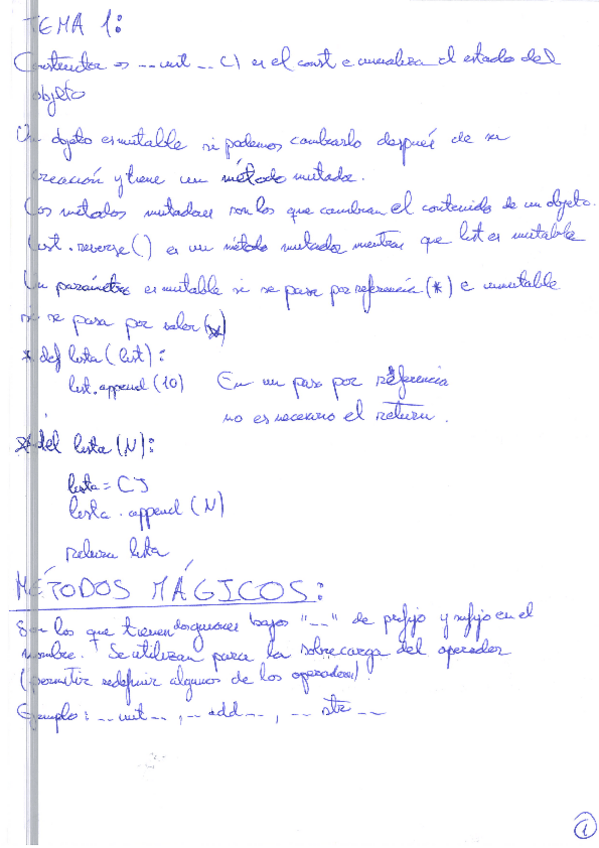 TEMA 1:
Constructor es __init__() es el const e inicializa el estado del
objeto
Un objeto es mutable si podemos cambiarlo después de su
creación y tiene un método mutador.
Los métodos mutadores son los que cambian el contenido de un objeto.
list.reverse() es un método mutador mientras que list es mutable
Un parámetro es mutable si se pasa por referencia (*) e inmutable
si se pasa por valor (**)
* def lista (list):
list.append(10) En un paso por referencia
no es necesario el return.
** def lista (N):
lista = []
lista.append(N)
return lista
MÉTODOS MÁGICOS:
Son los que tienen dos guiones bajos "__" de prefijo y sufijo en el
nombre. Se utilizan para la sobrecarga del operador
(permitir redefinir algunos de los operadores).
Ejemplo: __init__, __add__, __str__
1